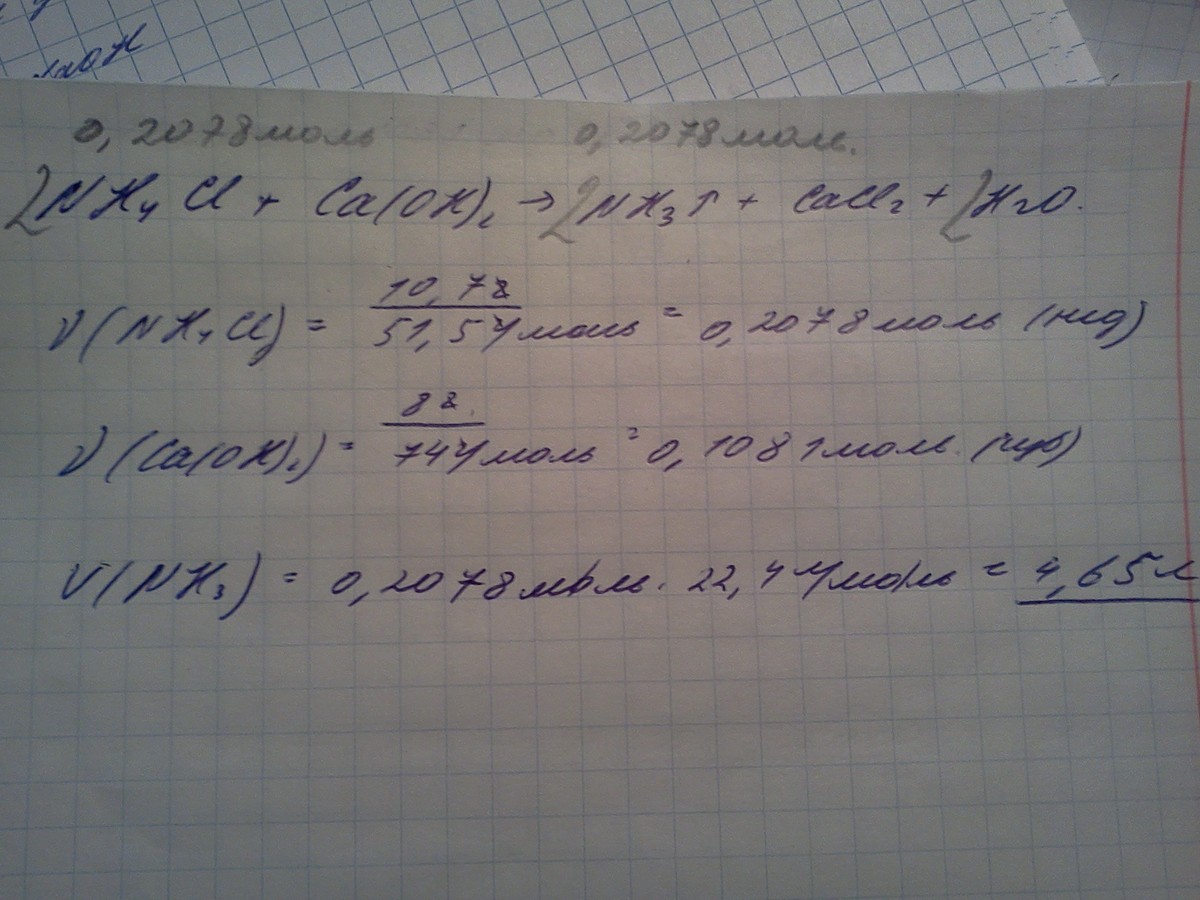 0,2078моль 0,2078моль.
2NH₄Cl + Ca(OH)₂ → 2NH₃↑ + CaCl₂ + 2H₂O.
ν(NH₄Cl) = 10,7г / 51,5г/моль = 0,2078моль (нед)
ν(Ca(OH)₂) = 8г. / 74г/моль = 0,1081моль. (изб)
V(NH₃) = 0,2078моль. 22,4л/моль = 4,65л